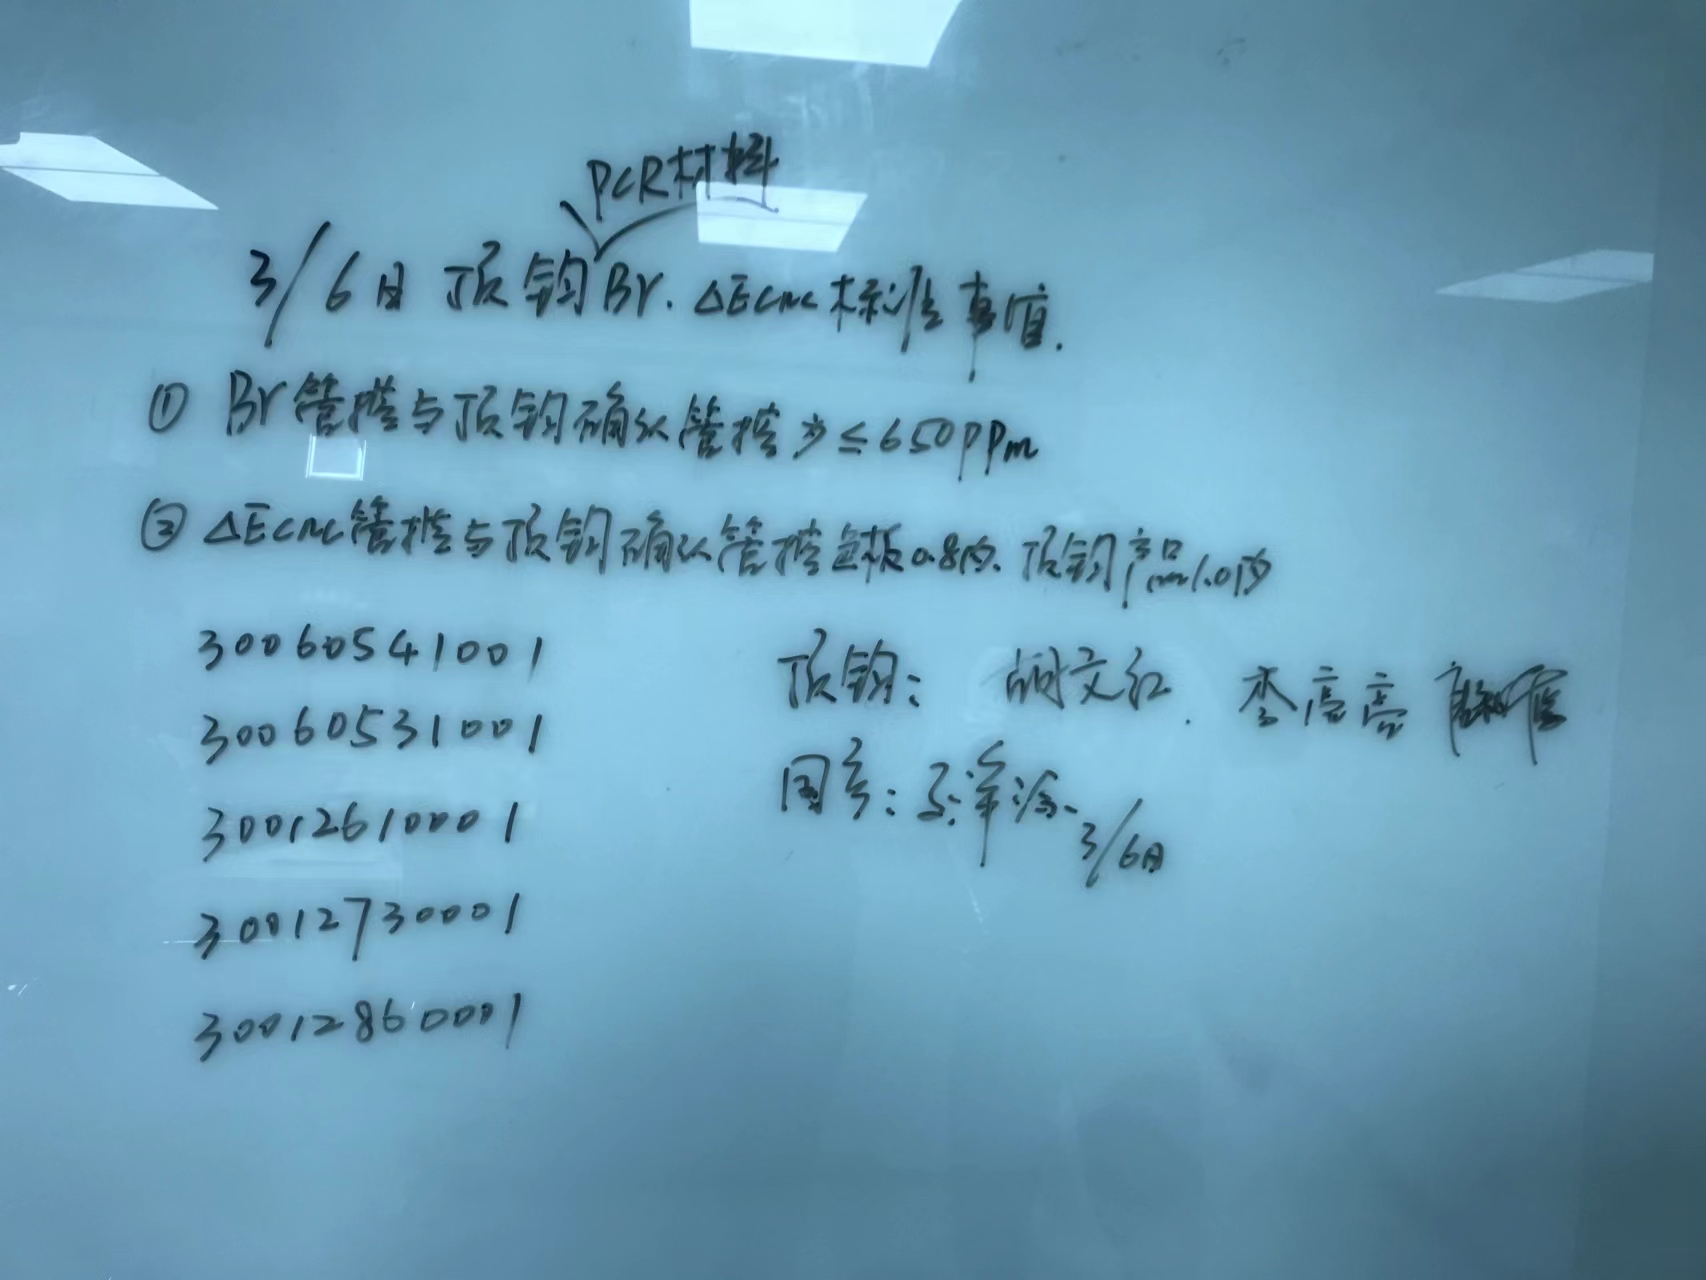 PCR材料
3/6日 顶钧Br.△Ecmc标准事宜.
① Br管控与顶钧确认管控 ≤650ppm
② △Ecmc管控与顶钧确认管控色板0.8内.顶钧产品1.0内
30060541001
30060531001
30012610001
30012730001
30012860001
顶钧: 胡文红. 李亮亮
国亨:
3/6日